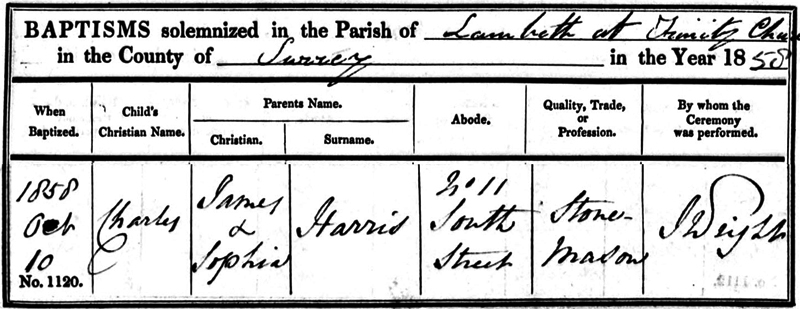 BAPTISMS solemnized in the Parish of Lambeth at Trinity
in the County of Surrey in the Year 1858
When Baptized.
Child's Christian Name.
Parents Name.
Christian.
Surname.
Abode.
Quality, Trade, or Profession.
By whom the Ceremony was performed.
1858
Oct
10
No. 1120.
Charles
James
&
Sophia
Harris
No 11
South
Street
Stone-
Mason